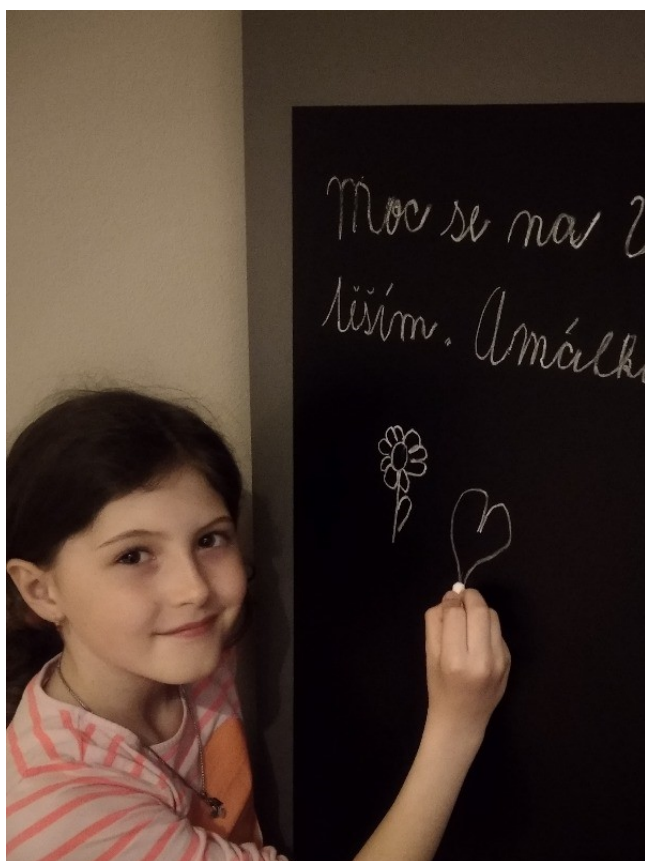 Moc se na
těším. Amálk